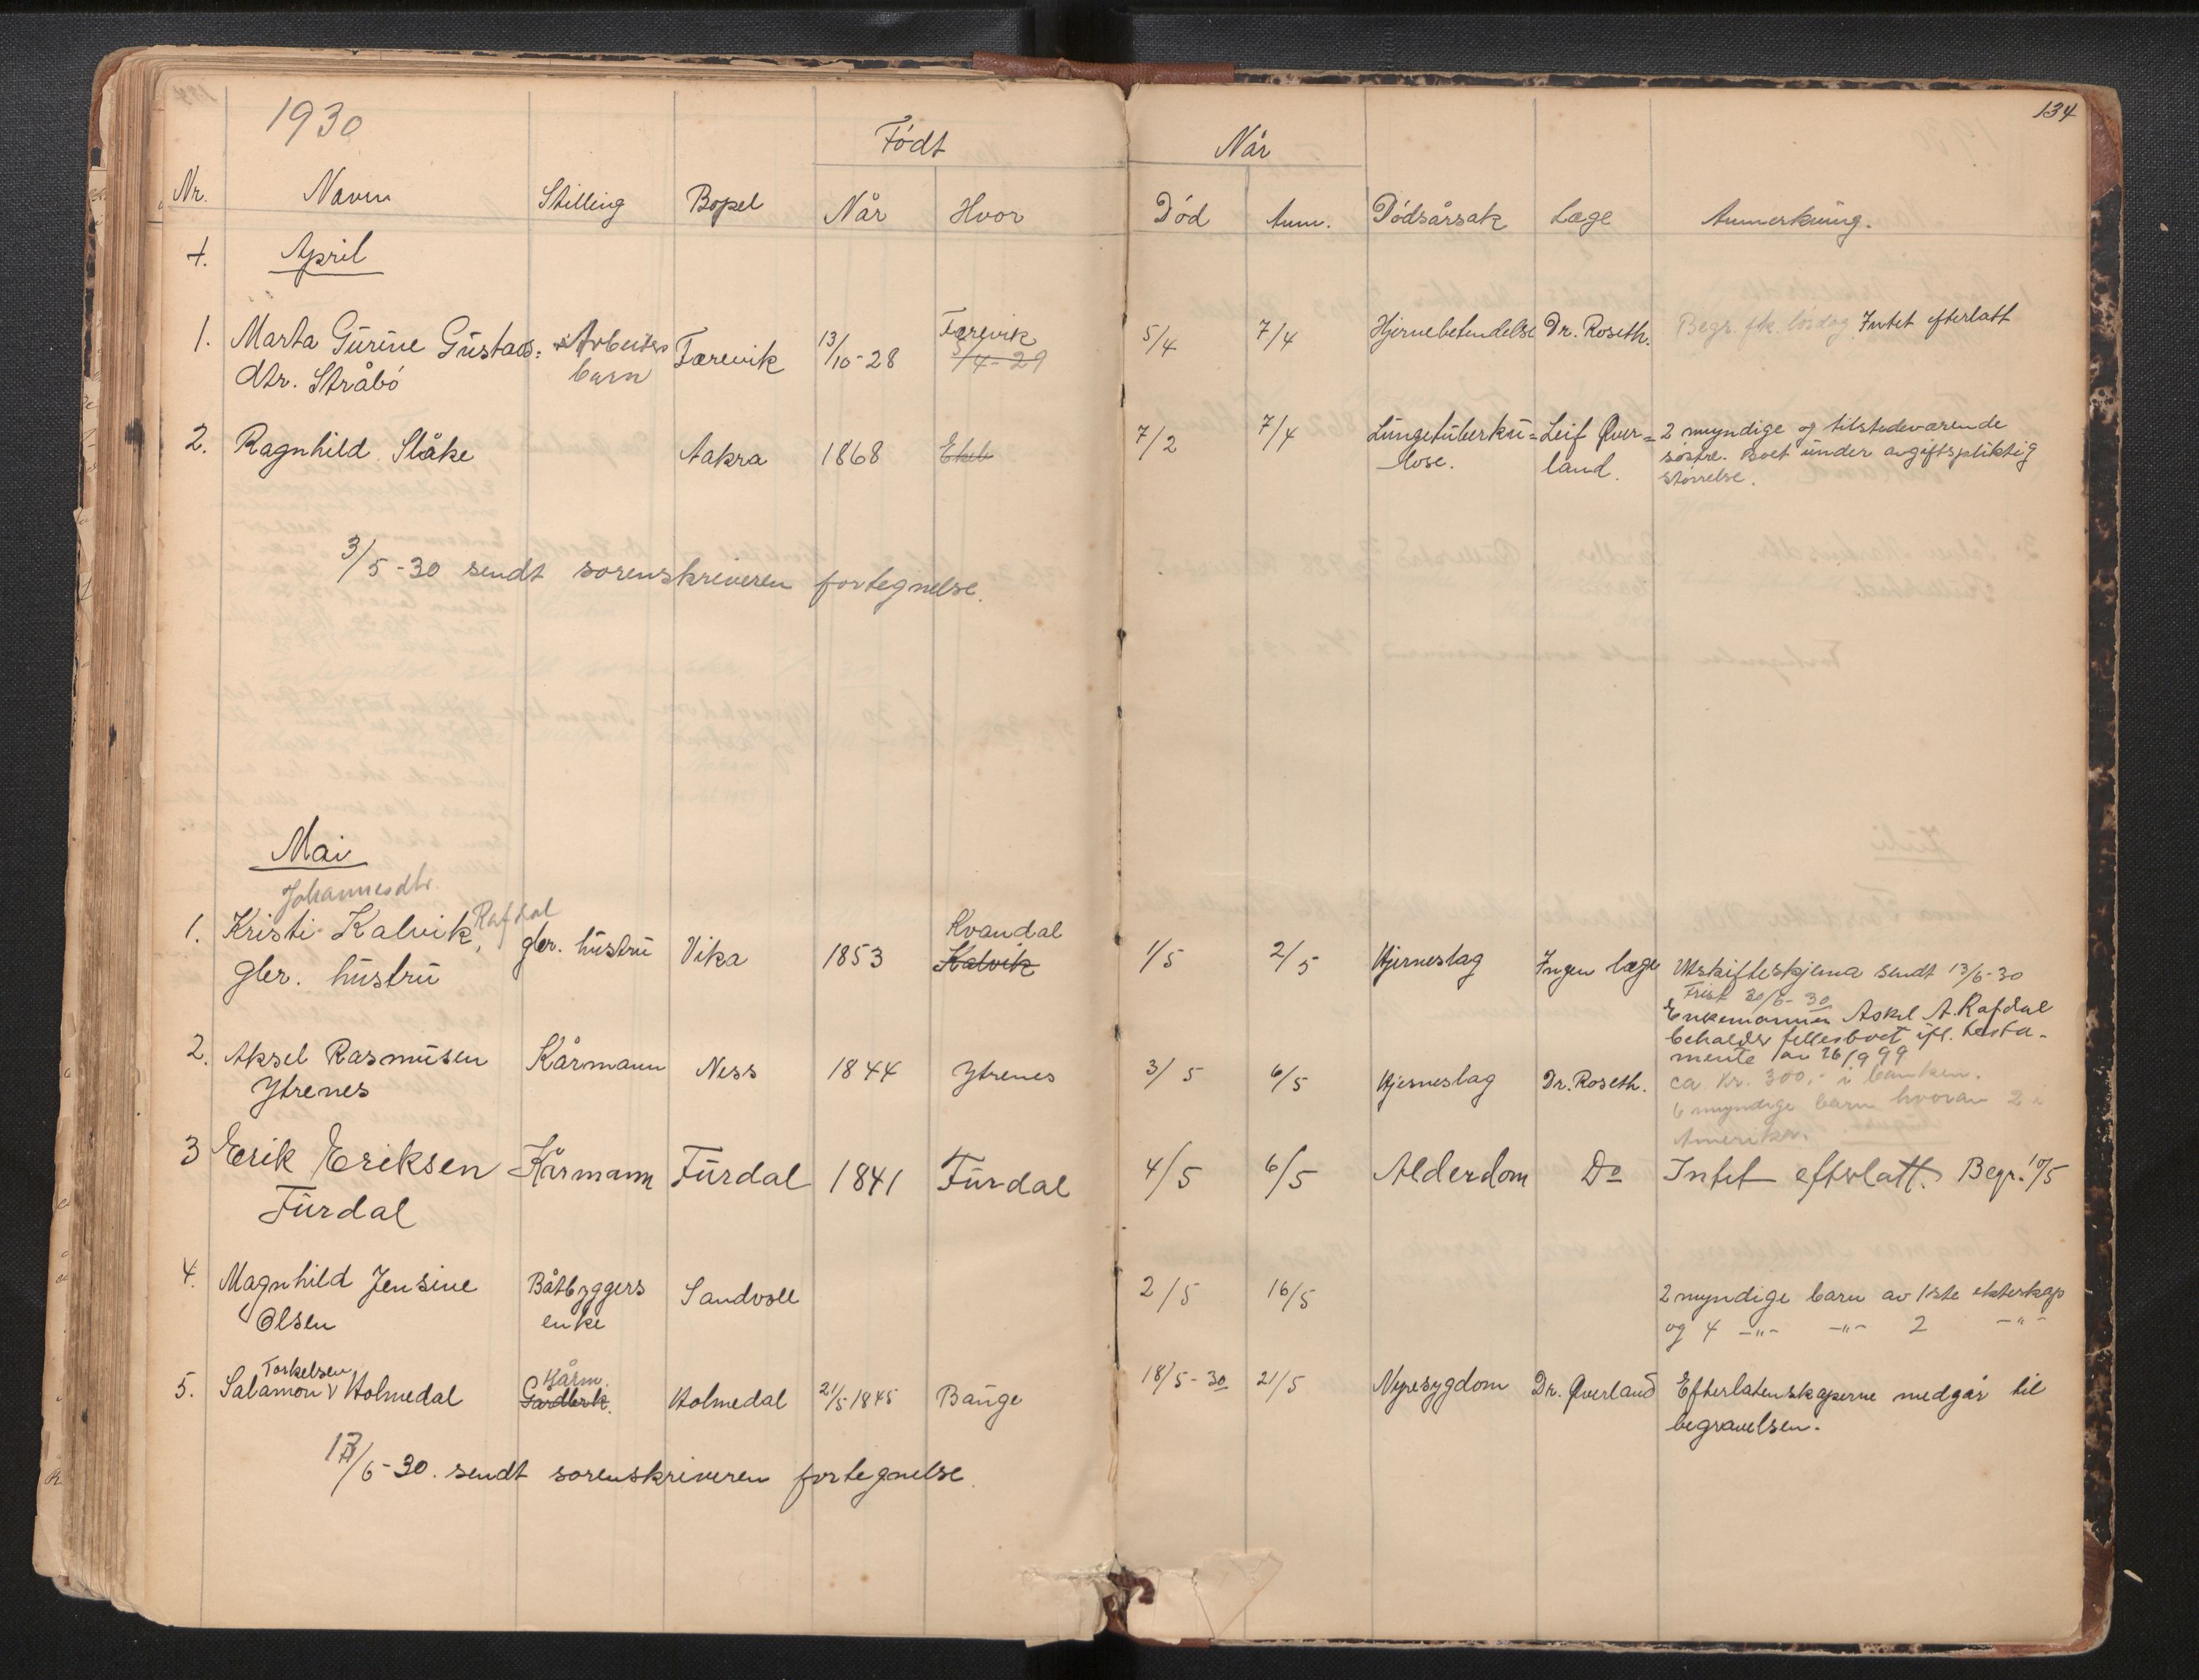 134
1930
Født
Når
Nr. Navn Stilling Bopel Når Hvor Død Anm. Dødsårsak Læge Anmerkning.
4. April
1. Marta Gurine Gustavs= Arbeiders Færevik 13/10-28 Færevik 5/4 7/4 Hjernebetendelse Dr. Roseth. Begr. fk. lørdag Intet efterlatt
dtr. Stråbø barn 5/4-29
2. Ragnhild Slåke Aakra 1868 7/2 7/4 Lungetuberku= Leif Øver= 2 myndige og tilstedeværende
lose. land. søstre. Boet under avgiftspliktig
størrelse.
3/5-30 sendt sorenskriveren fortegnelse.
Mai
Johannesdtr.
1. Kristi Kalvik, Rafdal gbr. hustru Vika 1853 Kvandal 1/5 2/5 Hjerneslag Ingen læge Utskifteskjema sendt 13/6-30
gbr. hustru Kalvik Frist 30/6-30
Enkemannen Askel A. Rafdal
beholder fellesboet ifl. testa-
mente av 26/9 99
2. Aksel Rasmusen Kårmann Ness 1844 Ytrenes 3/5 6/5 Hjerneslag Dr. Roseth. ca. kr. 300,- i banken.
Ytrenes 6 myndige barn hvorav 2 i
Amerika.
3 Erik Eriksen Kårmann Furdal 1841 Furdal 4/5 6/5 Alderdom Do Intet efterlatt. Begr. 10/5
Furdal
4. Magnhild Jensine Båtbyggers Sandvoll 2/5 16/5 2 myndige barn av 1ste ekteskap
Olsen enke og 4 -"- -"- 2 -"-
Torkelsen Kårm.
5. Salamon v Holmedal Gardbrk. Holmedal 21/5-1845 Bauge 18/5-30 21/5 Nyresygdom Dr. Øverland Efterlatenskaperne medgår til
begravelsen.
13/6-30. sendt sorenskriveren fortegnelse.